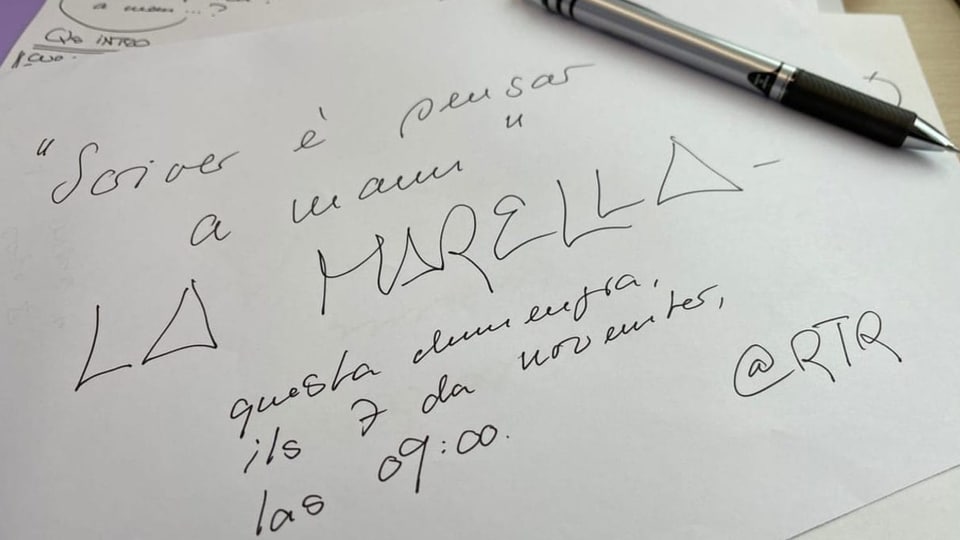 a mann ...?
Qs INTRO
"Scriver è pensar
a maun"
LA MARELLA -
questa dumengia,
ils 7 da november,
las 09:00.
@RTR